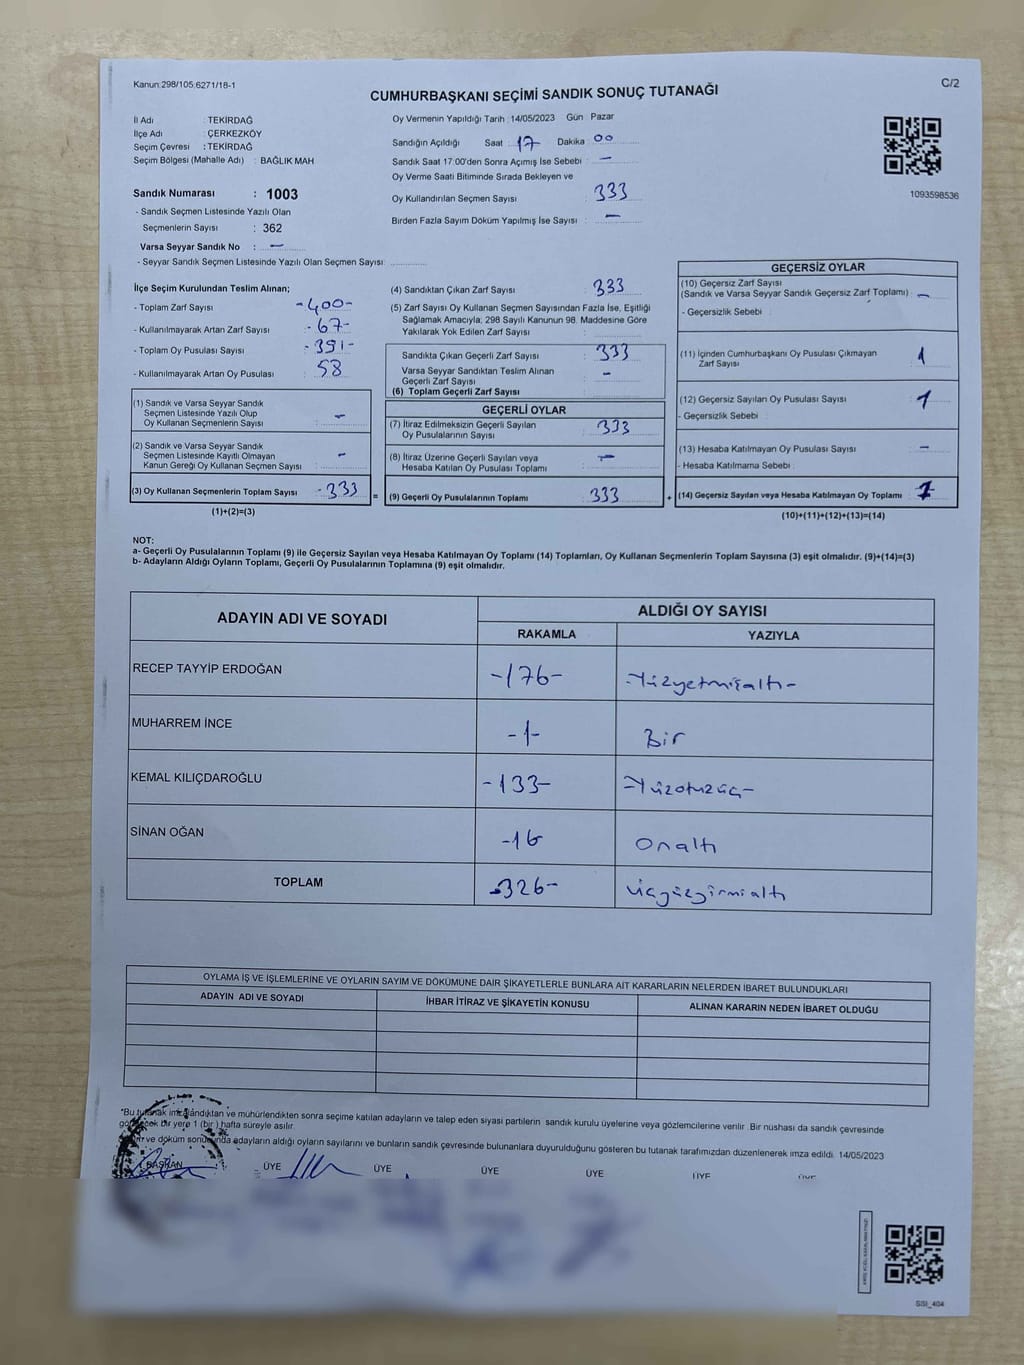 Kanun:298/105;6271/18-1
C/2
CUMHURBAŞKANI SEÇİMİ SANDIK SONUÇ TUTANAĞI
İl Adı : TEKİRDAĞ
İlçe Adı : ÇERKEZKÖY
Seçim Çevresi : TEKİRDAĞ
Seçim Bölgesi (Mahalle Adı) : BAĞLIK MAH
Sandık Numarası : 1003
- Sandık Seçmen Listesinde Yazılı Olan
Seçmenlerin Sayısı : 362
Varsa Seyyar Sandık No : -
- Seyyar Sandık Seçmen Listesinde Yazılı Olan Seçmen Sayısı:
Oy Vermenin Yapıldığı Tarih : 14/05/2023 Gün : Pazar
Sandığın Açıldığı Saat : 17 Dakika : 00
Sandık Saat 17:00'den Sonra Açımış İse Sebebi : -
Oy Verme Saati Bitiminde Sırada Bekleyen ve
Oy Kullandırılan Seçmen Sayısı : 333
Birden Fazla Sayım Döküm Yapılmış İse Sayısı : -
1093598536
İlçe Seçim Kurulundan Teslim Alınan;
- Toplam Zarf Sayısı : -400-
- Kullanılmayarak Artan Zarf Sayısı : -67-
- Toplam Oy Pusulası Sayısı : -391-
- Kullanılmayarak Artan Oy Pusulası : 58
(1) Sandık ve Varsa Seyyar Sandık
Seçmen Listesinde Yazılı Olup
Oy Kullanan Seçmenlerin Sayısı : -
(2) Sandık ve Varsa Seyyar Sandık
Seçmen Listesinde Kayıtlı Olmayan
Kanun Gereği Oy Kullanan Seçmen Sayısı : -
(3) Oy Kullanan Seçmenlerin Toplam Sayısı : -333
(1)+(2)=(3)
(4) Sandıktan Çıkan Zarf Sayısı : 333
(5) Zarf Sayısı Oy Kullanan Seçmen Sayısından Fazla İse, Eşitliği
Sağlamak Amacıyla; 298 Sayılı Kanunun 98. Maddesine Göre
Yakılarak Yok Edilen Zarf Sayısı :
Sandıkta Çıkan Geçerli Zarf Sayısı : 333
Varsa Seyyar Sandıktan Teslim Alınan
Geçerli Zarf Sayısı : -
(6) Toplam Geçerli Zarf Sayısı :
GEÇERLİ OYLAR
(7) İtiraz Edilmeksizin Geçerli Sayılan
Oy Pusulalarının Sayısı : 333
(8) İtiraz Üzerine Geçerli Sayılan veya
Hesaba Katılan Oy Pusulası Toplamı : -
= (9) Geçerli Oy Pusulalarının Toplamı : 333
GEÇERSİZ OYLAR
(10) Geçersiz Zarf Sayısı
(Sandık ve Varsa Seyyar Sandık Geçersiz Zarf Toplamı) : -
- Geçersizlik Sebebi :
(11) İçinden Cumhurbaşkanı Oy Pusulası Çıkmayan
Zarf Sayısı : 1
(12) Geçersiz Sayılan Oy Pusulası Sayısı :
- Geçersizlik Sebebi :
(13) Hesaba Katılmayan Oy Pusulası Sayısı : -
- Hesaba Katılmama Sebebi :
+ (14) Geçersiz Sayılan veya Hesaba Katılmayan Oy Toplamı : 7
(10)+(11)+(12)+(13)=(14)
NOT:
a- Geçerli Oy Pusulalarının Toplamı (9) ile Geçersiz Sayılan veya Hesaba Katılmayan Oy Toplamı (14) Toplamları, Oy Kullanan Seçmenlerin Toplam Sayısına (3) eşit olmalıdır. (9)+(14)=(3)
b- Adayların Aldığı Oyların Toplamı, Geçerli Oy Pusulalarının Toplamına (9) eşit olmalıdır.
ADAYIN ADI VE SOYADI
ALDIĞI OY SAYISI
RAKAMLA YAZIYLA
RECEP TAYYİP ERDOĞAN -176- -Yüzyetmişaltı-
MUHARREM İNCE -1- Bir
KEMAL KILIÇDAROĞLU -133- -Yüzotuzüç-
SİNAN OĞAN -16 Onaltı
TOPLAM -326- üçyüzyirmialtı
OYLAMA İŞ VE İŞLEMLERİNE VE OYLARIN SAYIM VE DÖKÜMÜNE DAİR ŞİKAYETLERLE BUNLARA AİT KARARLARIN NELERDEN İBARET BULUNDUKLARI
ADAYIN ADI VE SOYADI İHBAR İTİRAZ VE ŞİKAYETİN KONUSU ALINAN KARARIN NEDEN İBARET OLDUĞU
*Bu tutanak imzalandıktan ve mühürlendikten sonra seçime katılan adayların ve talep eden siyasi partilerin sandık kurulu üyelerine veya gözlemcilerine verilir. Bir nüshası da sandık çevresinde
bir yere 1 (bir) hafta süreyle asılır.
ve döküm sonucunda adayların aldığı oyların sayılarını ve bunların sandık çevresinde bulunanlara duyurulduğunu gösteren bu tutanak tarafımızdan düzenlenerek imza edildi. 14/05/2023
BAŞKAN ÜYE ÜYE ÜYE ÜYE ÜYE ÜYE
SSI_404